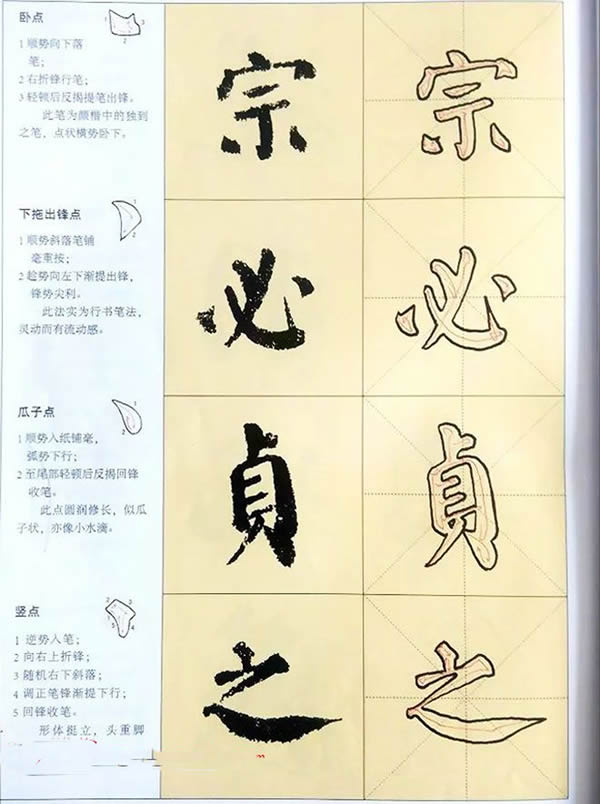 卧点
1 顺势向下落
笔；
2 右折锋行笔；
3 轻顿后反揭提笔出锋。
此笔为颜楷中的独到
之笔，点状横势卧下。
1
2
3
宗
宗
下拖出锋点
1 顺势斜落笔铺
毫重按；
2 趁势向左下渐提出锋，
锋势尖利。
此法实为行书笔法，
灵动而有流动感。
1
2
必
必
瓜子点
1 顺势入纸铺毫，
弧势下行；
2 至尾部轻顿后反揭回锋
收笔。
此点圆润修长，似瓜
子状，亦像小水滴。
1
2
貞
貞
竖点
1 逆势入笔；
2 向右上折锋；
3 随机右下斜落；
4 调正笔锋渐提下行；
5 回锋收笔。
形体挺立，头重脚
1
2
3
4
5
之
之